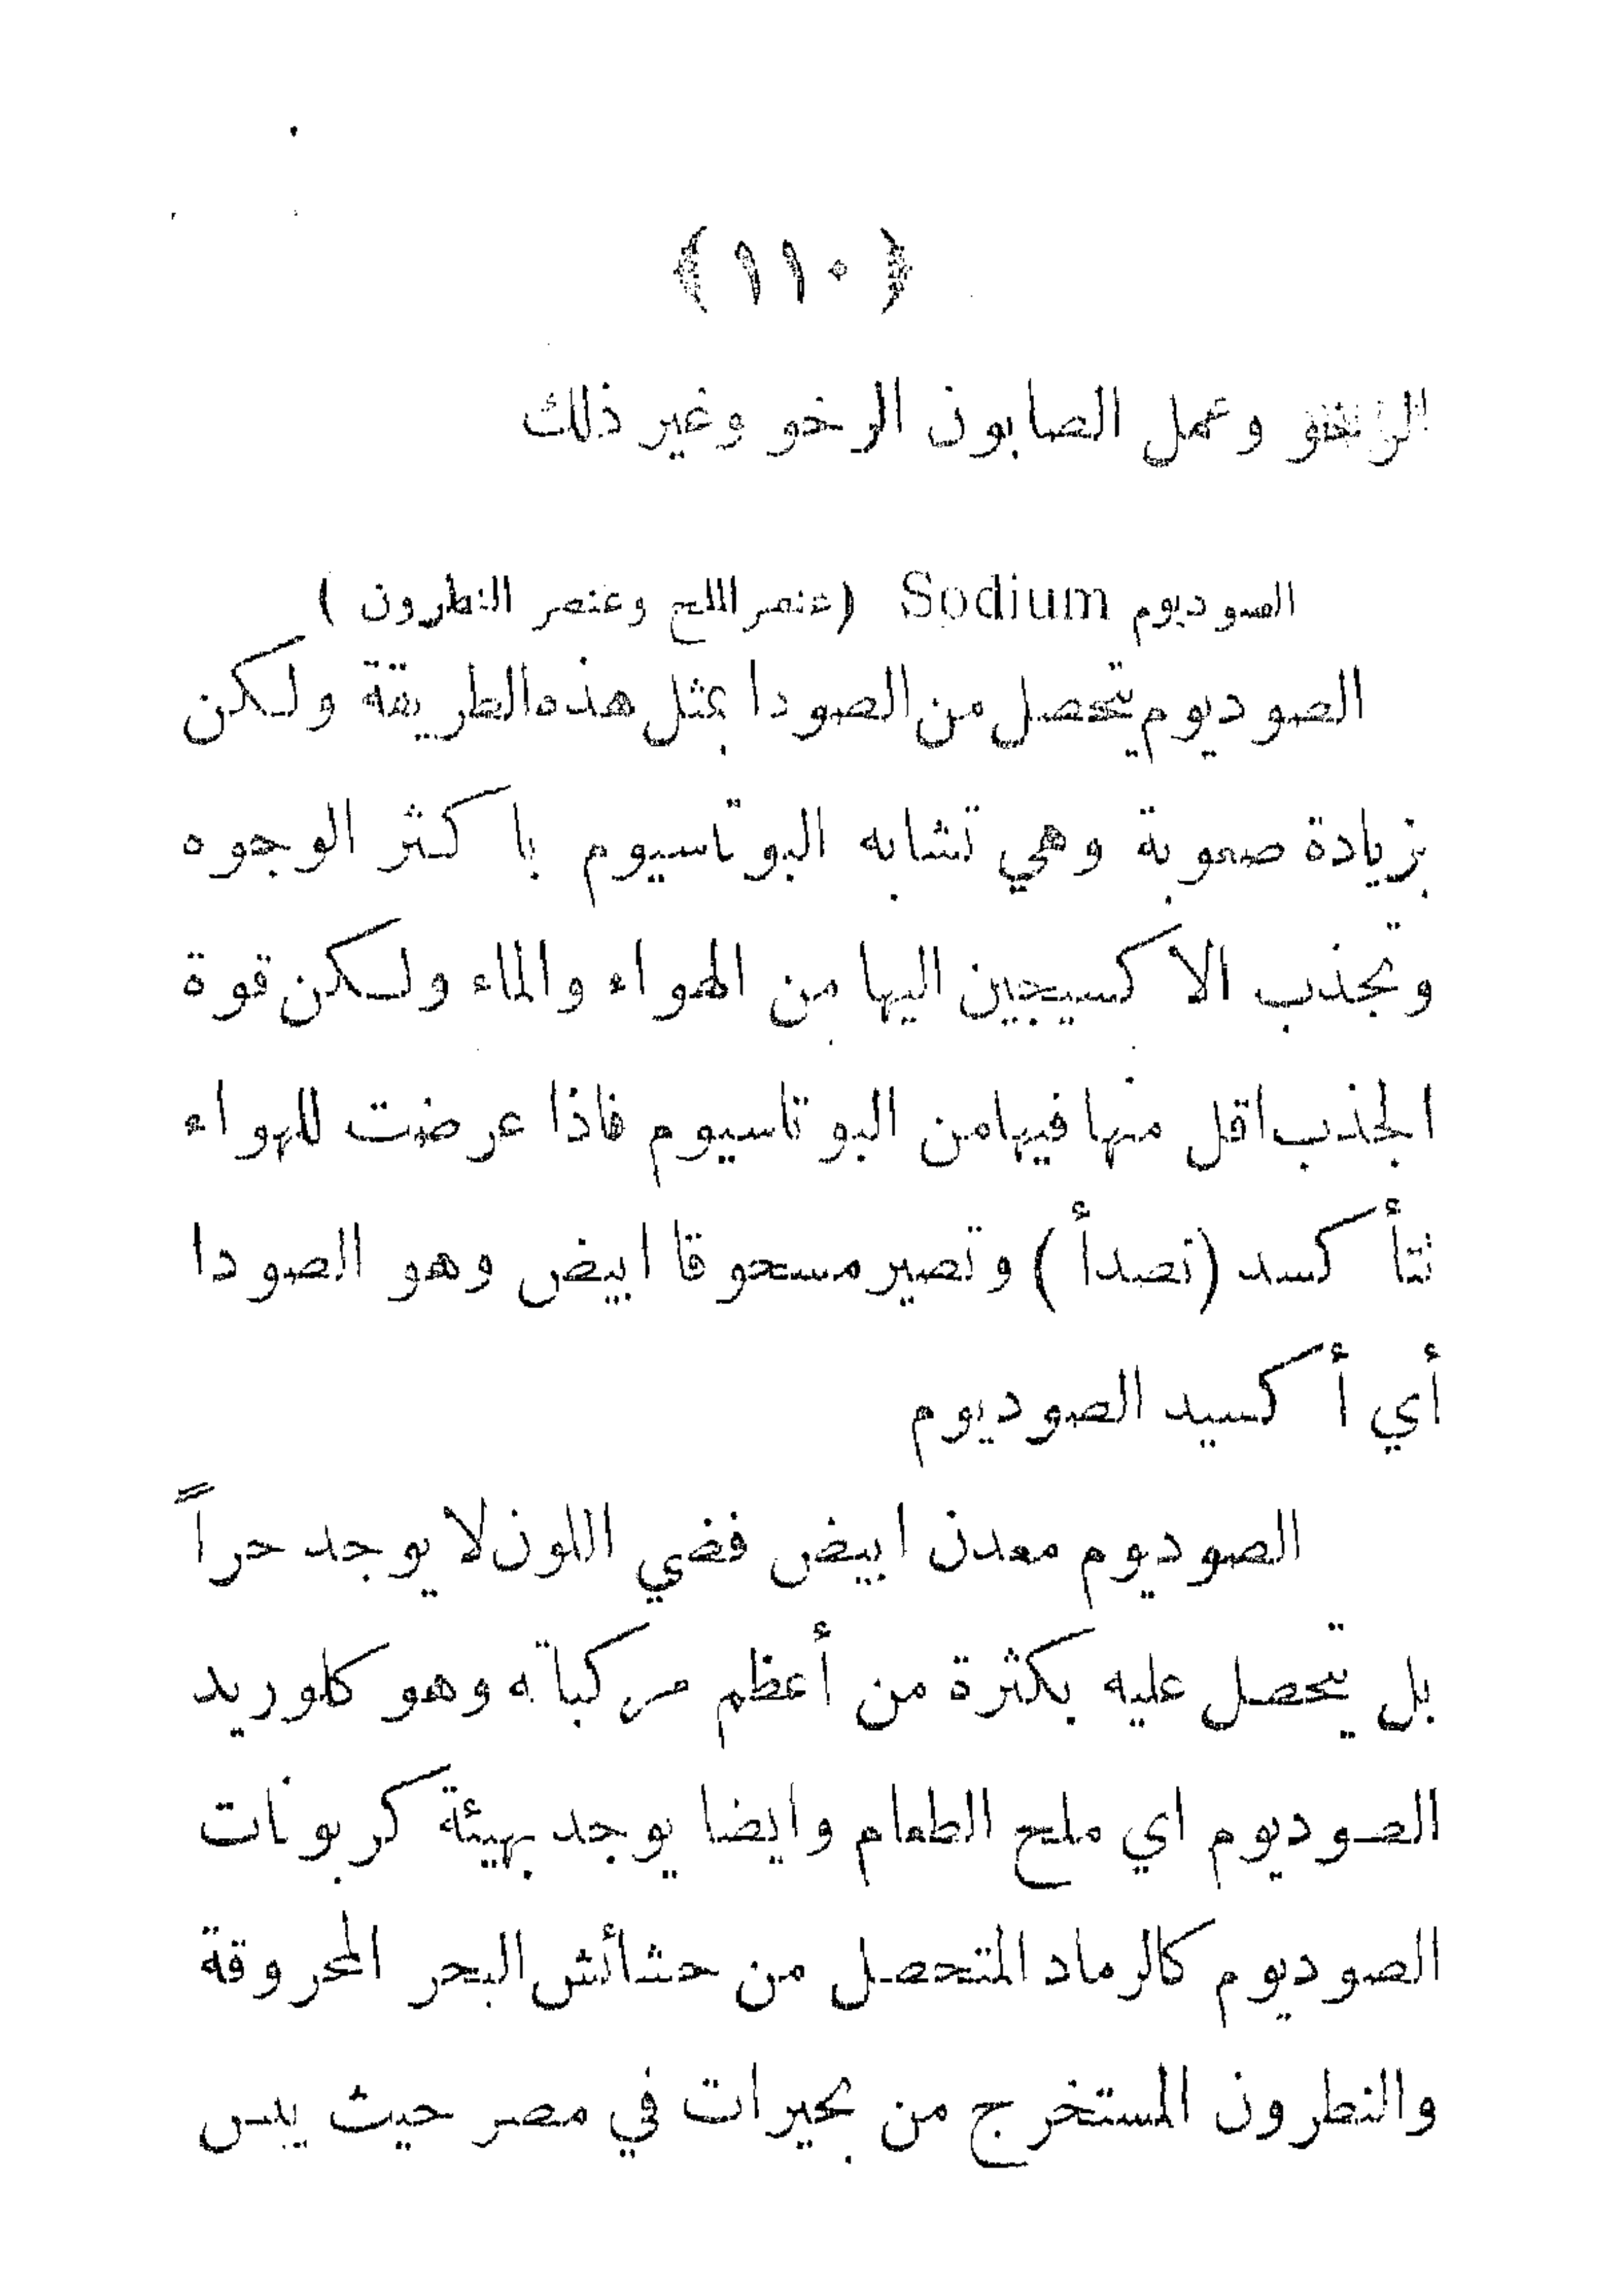 ﴿ ١١٠ ﴾
وعمل الصابون الرخو وغير ذلك
الصوديوم Sodium (عنصر الملح وعنصر النطرون )
الصوديوم يتحصل من الصودا بمثل هذه الطريقة ولكن
بزيادة صعوبة وهي تشابه البوتاسيوم باكثر الوجوه
وتجذب الاكسيجين اليها من الهواء والماء ولكن قوة
الجذب اقل منها فيها من البوتاسيوم فاذا عرضت للهواء
تتأكسد (تصدأ ) وتصير مسحوقا ابيض وهو الصودا
أي أكسيد الصوديوم
الصوديوم معدن ابيض فضي اللون لا يوجد حراً
بل يتحصل عليه بكثرة من أعظم مركباته وهو كلوريد
الصوديوم اي ملح الطعام وايضا يوجد بهيئة كربونات
الصوديوم كالرماد المتحصل من حشائش البحر المحروقة
والنطرون المستخرج من بحيرات في مصر حيث يبس